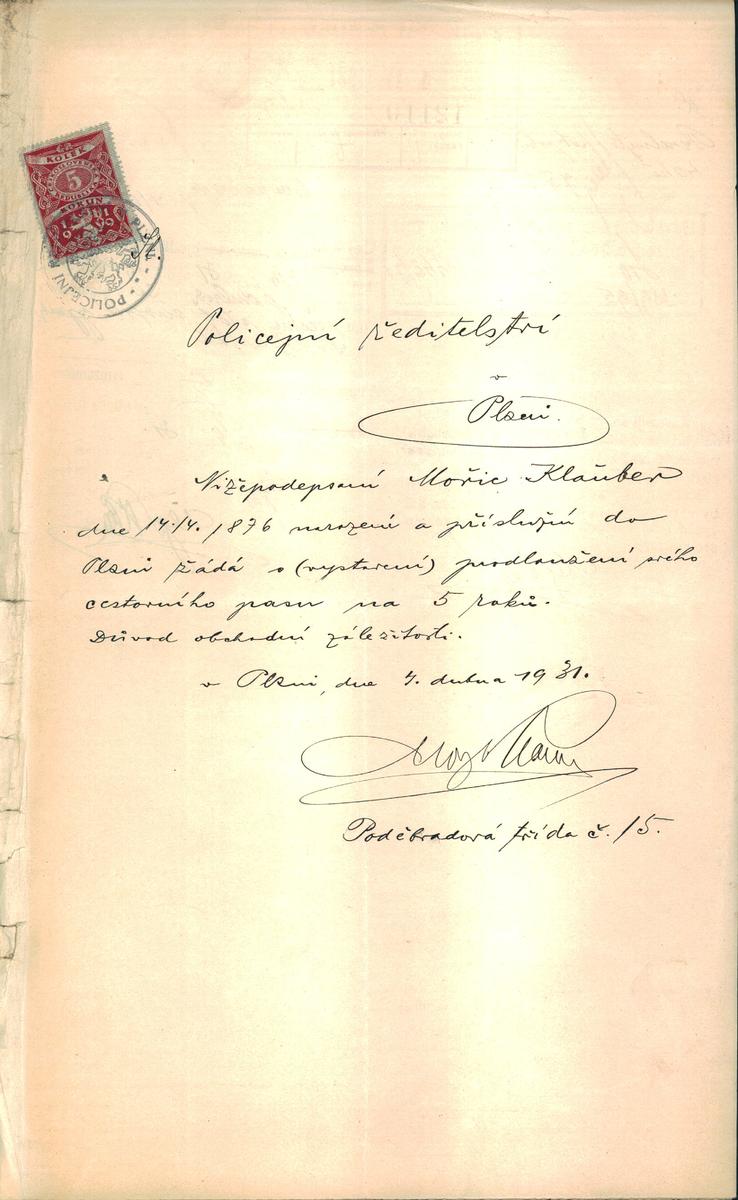 KOLEK
5
KORUN
1919
POLICEJNÍ
PLZNI
Policejní ředitelství
v
Plzni.
Nížepodepsaní Mořic Klauber
dne 14.14. 1876 narození a příslušní do
Plzni žádá o (vystavení) prodloužení svého
cestovního pasu na 5 roků.
Důvod obchodní záležitosti.
v Plzni, dne 4. dubna 1931.
Poděbradová třída č. 15.